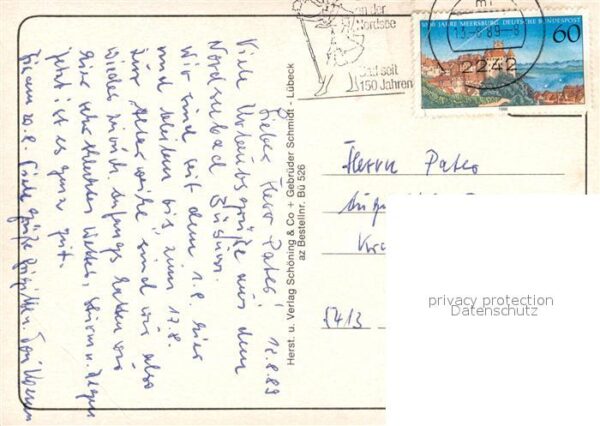 an der
Nordsee
Bad seit
150 Jahren
13.-8.89-9
2242
1000 JAHRE MEERSBURG DEUTSCHE BUNDESPOST
60
1988
12.8.89
Lieber Herr Pater!
Viele Urlaubsgrüße aus dem
Nordseebad Büsum.
Wir sind seit dem 1.8. hier
und bleiben bis zum 17.8.
Zur sind wir also
wieder zurück. Anfangs hatten wir
hier sehr schlechtes Wetter, Sturm u. Regen
jetzt ist es ganz gut.
Bis am 20.8. Viele Grüße
Herst. u. Verlag Schöning & Co + Gebrüder Schmidt - Lübeck
az Bestellnr. Bü 526
Herrn Pater
5413
privacy protection
Datenschutz